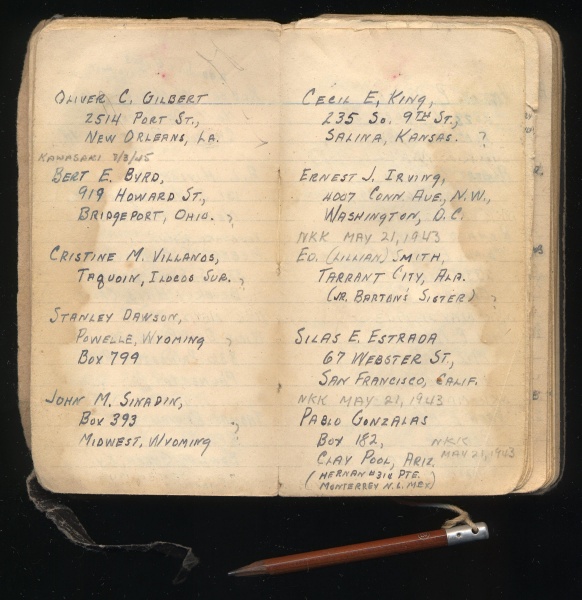 OLIVER C. GILBERT
2514 PORT ST.,
NEW ORLEANS, LA.
KAWASAKI 7/3/45
BERT E. BYRD,
919 HOWARD ST.,
BRIDGEPORT, OHIO. ?
CRISTINE M. VILLANOS,
TAQUOIN, ILOCOS SUR. ?
STANLEY DAWSON,
POWELLE, WYOMING ?
BOX 799
JOHN M. SINADIN,
BOX 393 ?
MIDWEST, WYOMING
CECIL E. KING,
235 SO. 9TH ST.,
SALINA, KANSAS. ?
ERNEST J. IRVING,
4007 CONN. AVE., N.W.,
WASHINGTON, D.C.
NKK MAY 21, 1943
ED. (LILLIAN) SMITH,
TARRANT CITY, ALA.
(JR. BARTON'S SISTER) ?
SILAS E. ESTRADA
67 WEBSTER ST.,
SAN FRANCISCO, CALIF.
NKK MAY 21, 1943
PABLO GONZALAS
BOX 182, NKK
CLAY POOL, ARIZ. MAY 21, 1943
(HERNAN #314 PTE.)
MONTERREY N.L. MEX)